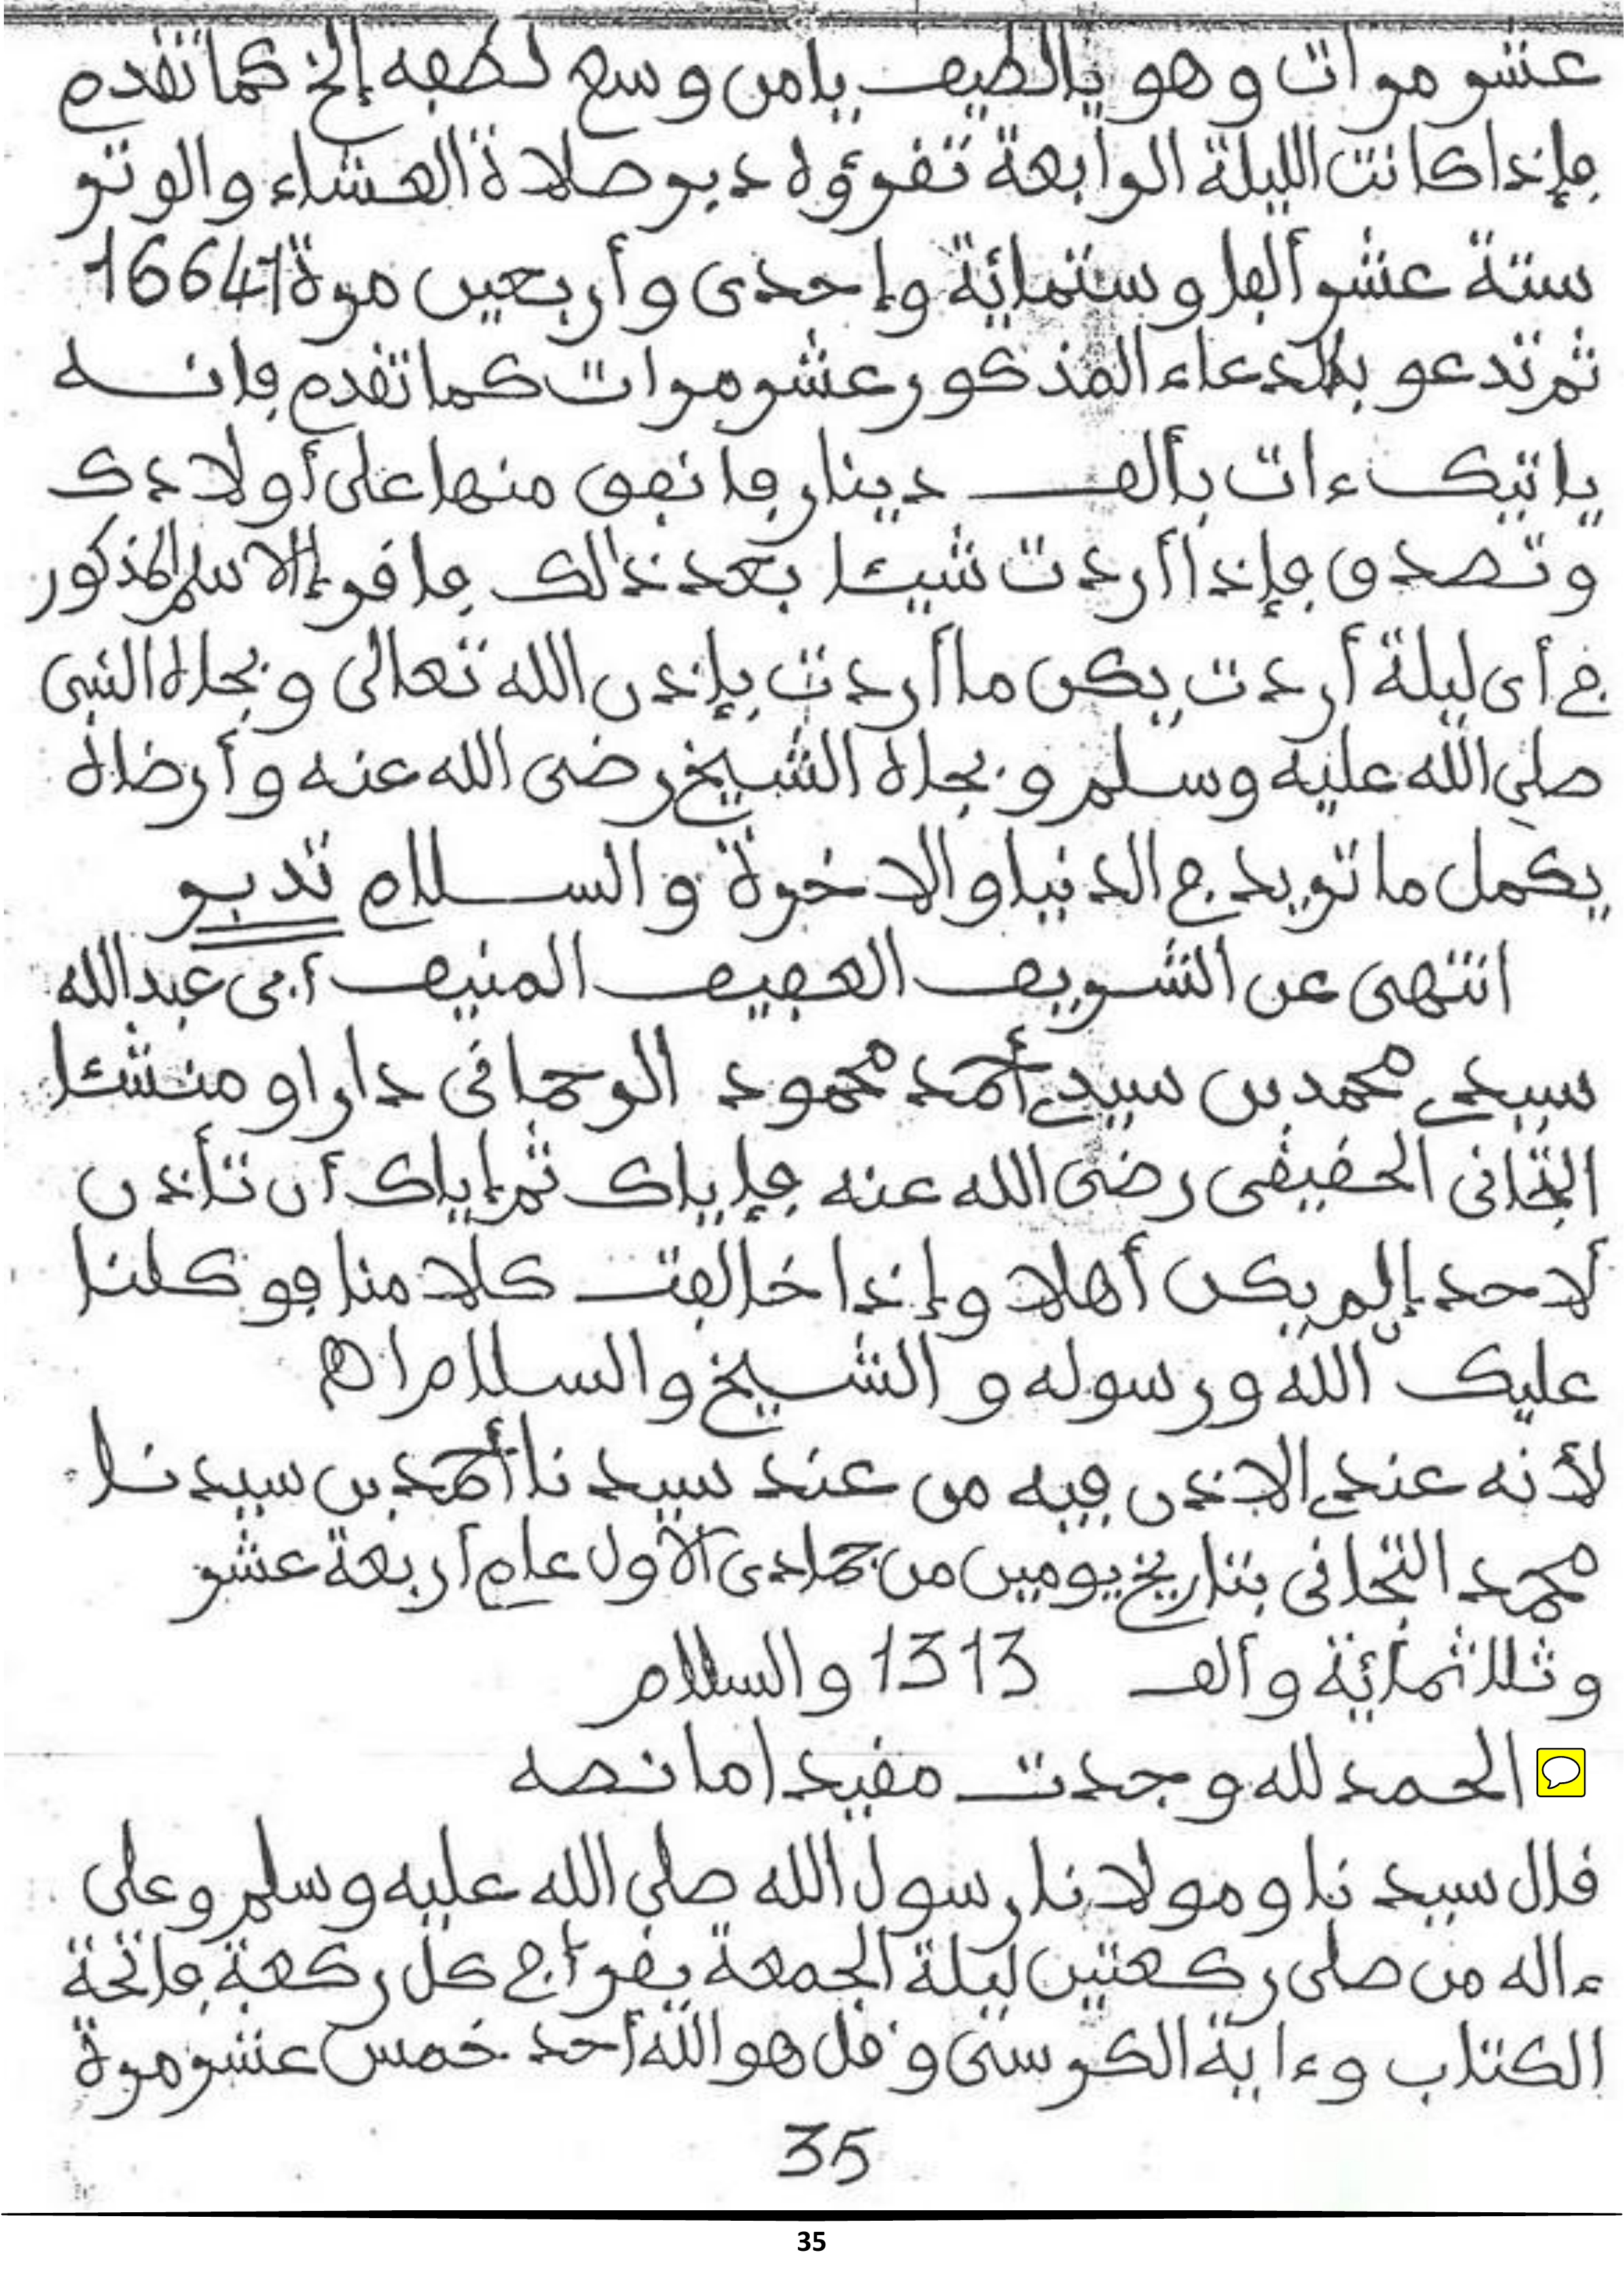 عشر مرات وهو يالطيف يامن وسع لطفه إلخ كما تقدم
فإذا كانت الليلة الرابعة تقرؤه دبر صلاة العشاء والوتر
ستة عشر ألفا وستمائة وإحدى وأربعين مرة 16641
ثم تدعو بالدعاء المذكور عشر مرات كما تقدم فإنه
ياتيك ءات بألف دينار فانفق منها على أولادك
وتصدق فإذا أردت شيئا بعد ذالك فاقرإ الاسم المذكور
في أي ليلة أردت يكن ما أردت بإذن الله تعالى وبجاه النبى
صلى الله عليه وسلم وبجاه الشيخ رضى الله عنه وأرضاه
يكمل ما تريد في الدنيا والاخرة والسلام تدبر
انتهى عن الشريف العفيف المنيف أبى عبد الله
سيدي محمد بن سيدي أحمد محمود الرحمانى دارا ومنشئا
التجانى الحقيقى رضى الله عنه فإياك ثم إياك أن تأذن
لاحد إلم يكن أهلا وإذا خالفت كلامنا فوكلنا
عليك الله ورسوله والشيخ والسلام اه
لأنه عندي الاذن فيه من عند سيدنا أحمد بن سيدنا
محمد التجانى بتاريخ يومين من جمادى الأول عام أربعة عشر
وثلاثمائة وألف 1313 والسلام
الحمد لله وجدت مقيدا ما نصه
قال سيدنا ومولانا رسول الله صلى الله عليه وسلم وعلى
ءاله من صلى ركعتين ليلة الجمعة يقرأ في كل ركعة فاتحة
الكتاب وءاية الكرسى وقل هو الله أحد خمس عشر مرة
35
35